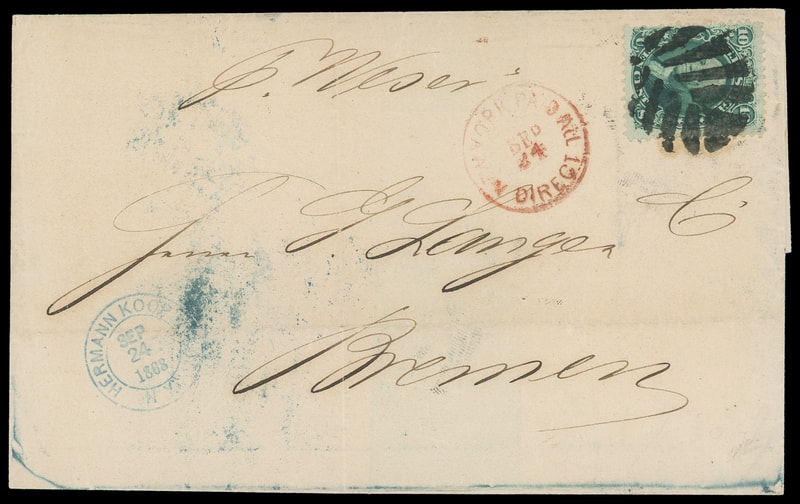 p. Weser
10
NEW YORK PAID ALL
SEP
24
DIRECT
Herrn G Lange & C°
HERMANN KOOP
SEP
24
1868
N.Y.
Bremen